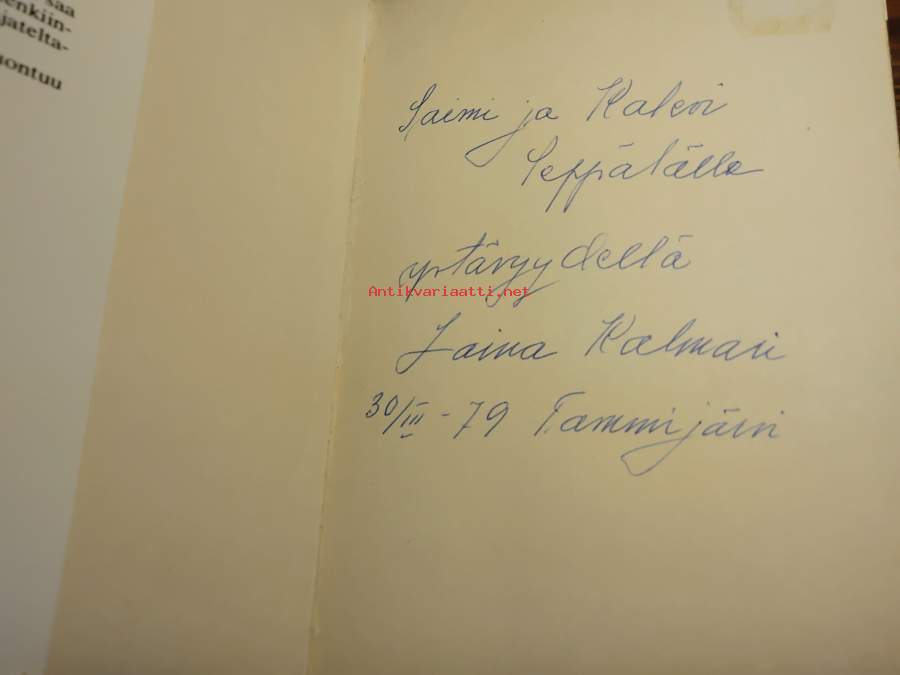 saa
enkiin-
jatelta-
ontuu
Saimi ja Kalevi
Seppälälle
ystävyydellä
Antikvariaatti.net
Laina Kalmari
30/III - 79 Tammijärvi